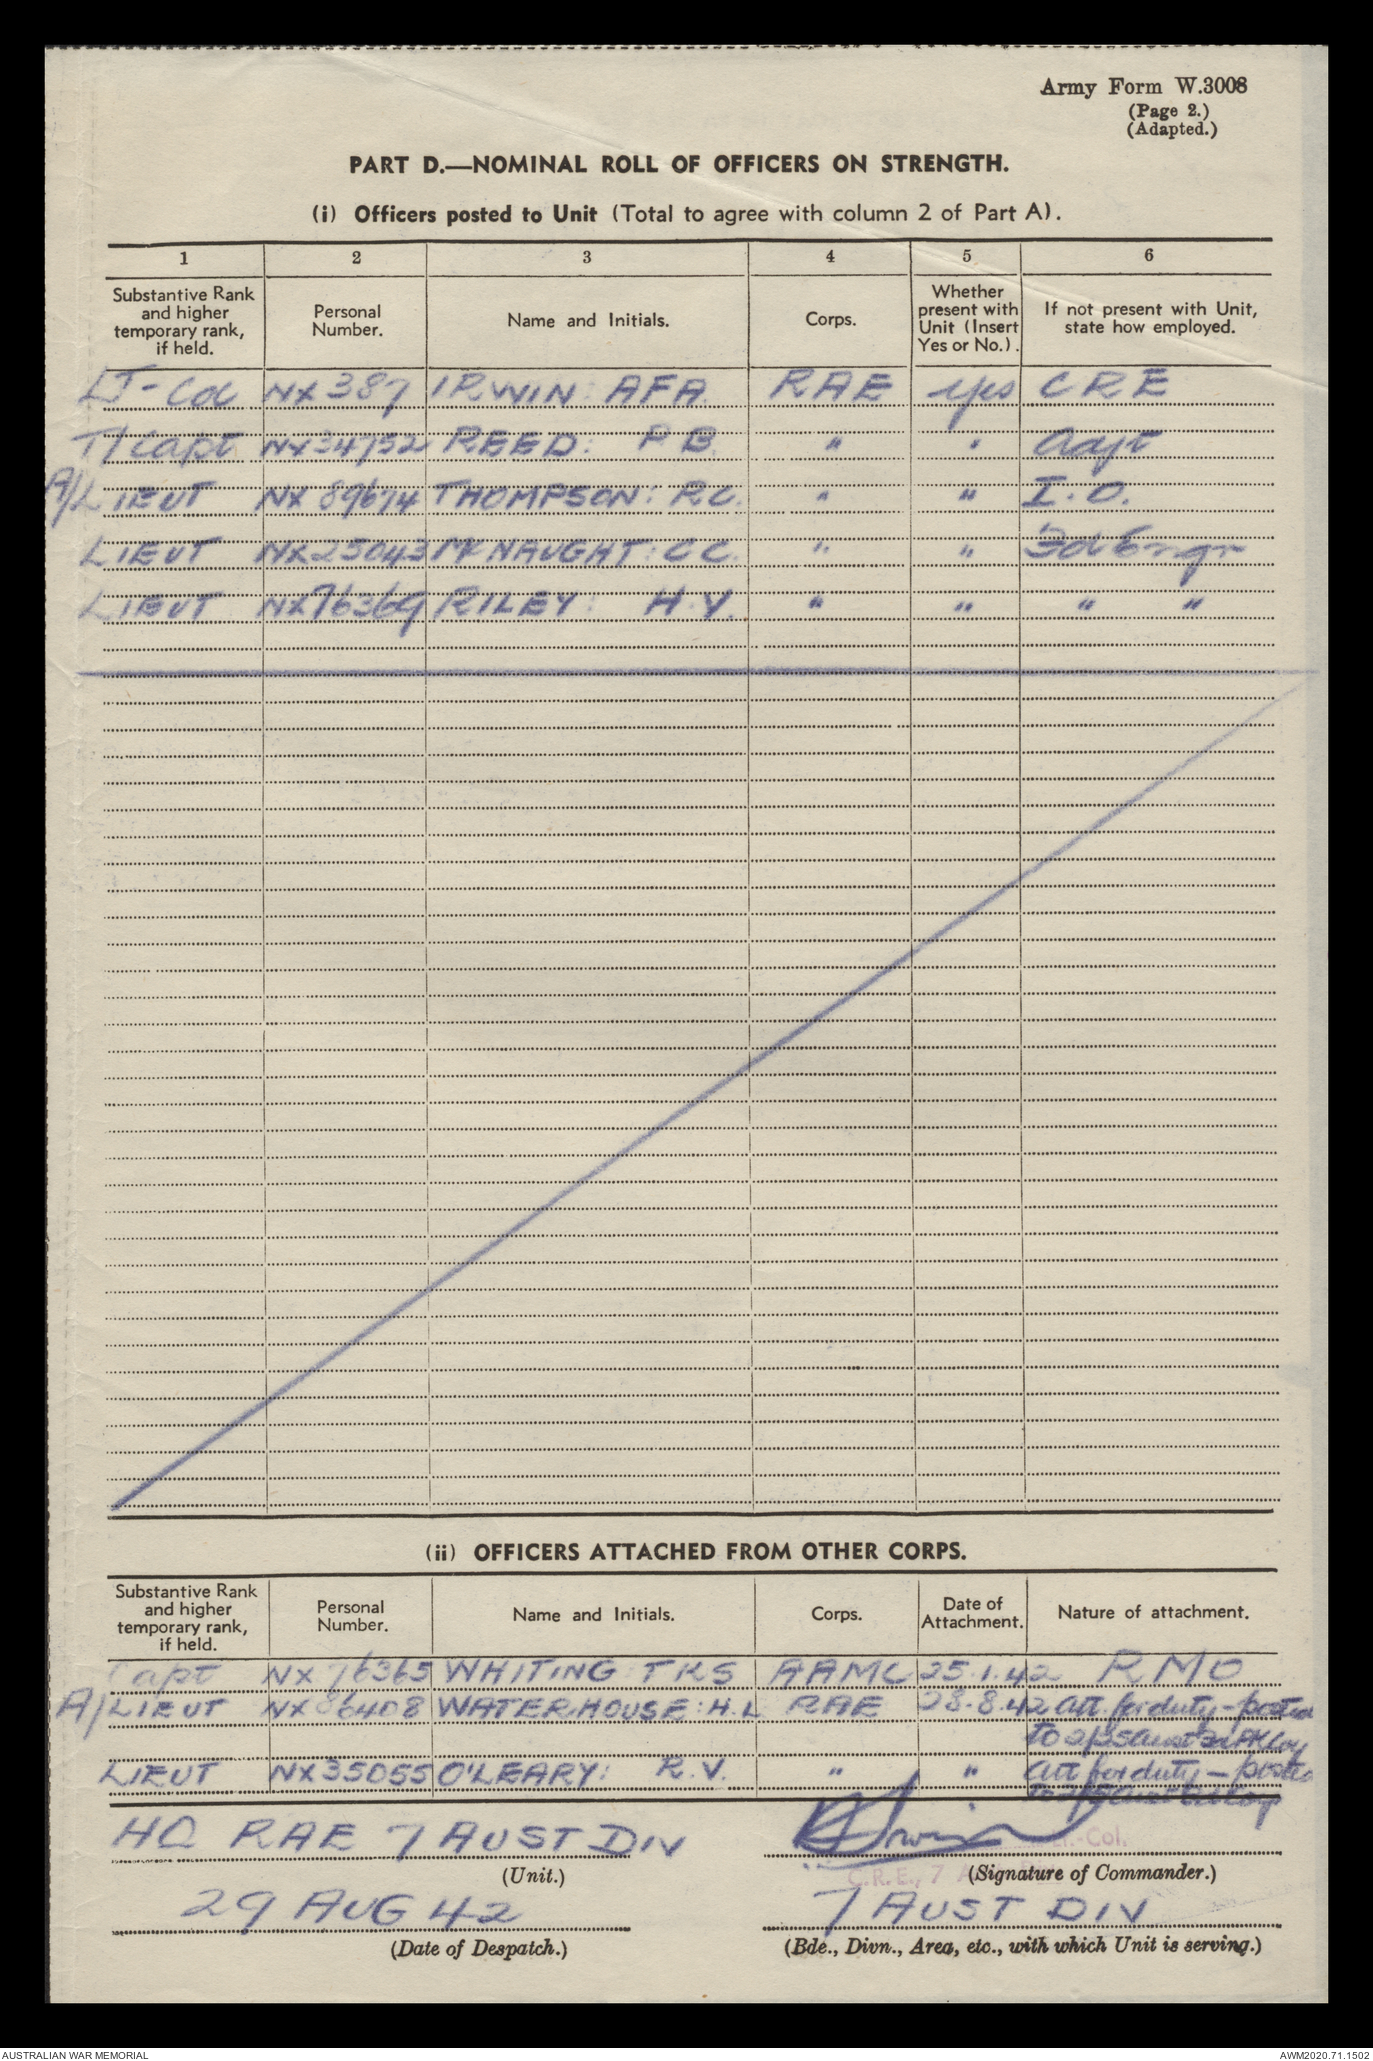 Army Form W.3008
(Page 2.)
(Adapted.)
PART D.—NOMINAL ROLL OF OFFICERS ON STRENGTH.
(i) Officers posted to Unit (Total to agree with column 2 of Part A).
1 2 3 4 5 6
Substantive Rank and higher temporary rank, if held. Personal Number. Name and Initials. Corps. Whether present with Unit (Insert Yes or No.). If not present with Unit, state how employed.
LT-Col NX387 IRWIN: AFA. RAE yes CRE
T/Capt NX34752 REED: P B. " " Adjt
A/LIEUT NX 89674 THOMPSON: R.C. " " I.O.
LIEUT NX25043 McNAUGHT: C C. " " Fd Engr
LIEUT NX76369 RILEY: H.Y. " " " "
(ii) OFFICERS ATTACHED FROM OTHER CORPS.
Substantive Rank and higher temporary rank, if held. Personal Number. Name and Initials. Corps. Date of Attachment. Nature of attachment.
Capt NX 76365 WHITING TKS AAMC 25.1.42 RMO
A/LIEUT NX86408 WATERHOUSE: H.L RAE 28.8.42 att. for duty - posted
to 2/5 Aust Fd PK Coy
LIEUT NX35055 O'LEARY: R.V. " " att for duty - posted
HQ RAE 7 AUST DIV
Lt.-Col.
(Unit.) (Signature of Commander.)
C.R.E., 7
29 AUG 42 7 AUST DIV
(Date of Despatch.) (Bde., Divn., Area, etc., with which Unit is serving.)
AUSTRALIAN WAR MEMORIAL AWM2020.71.1502